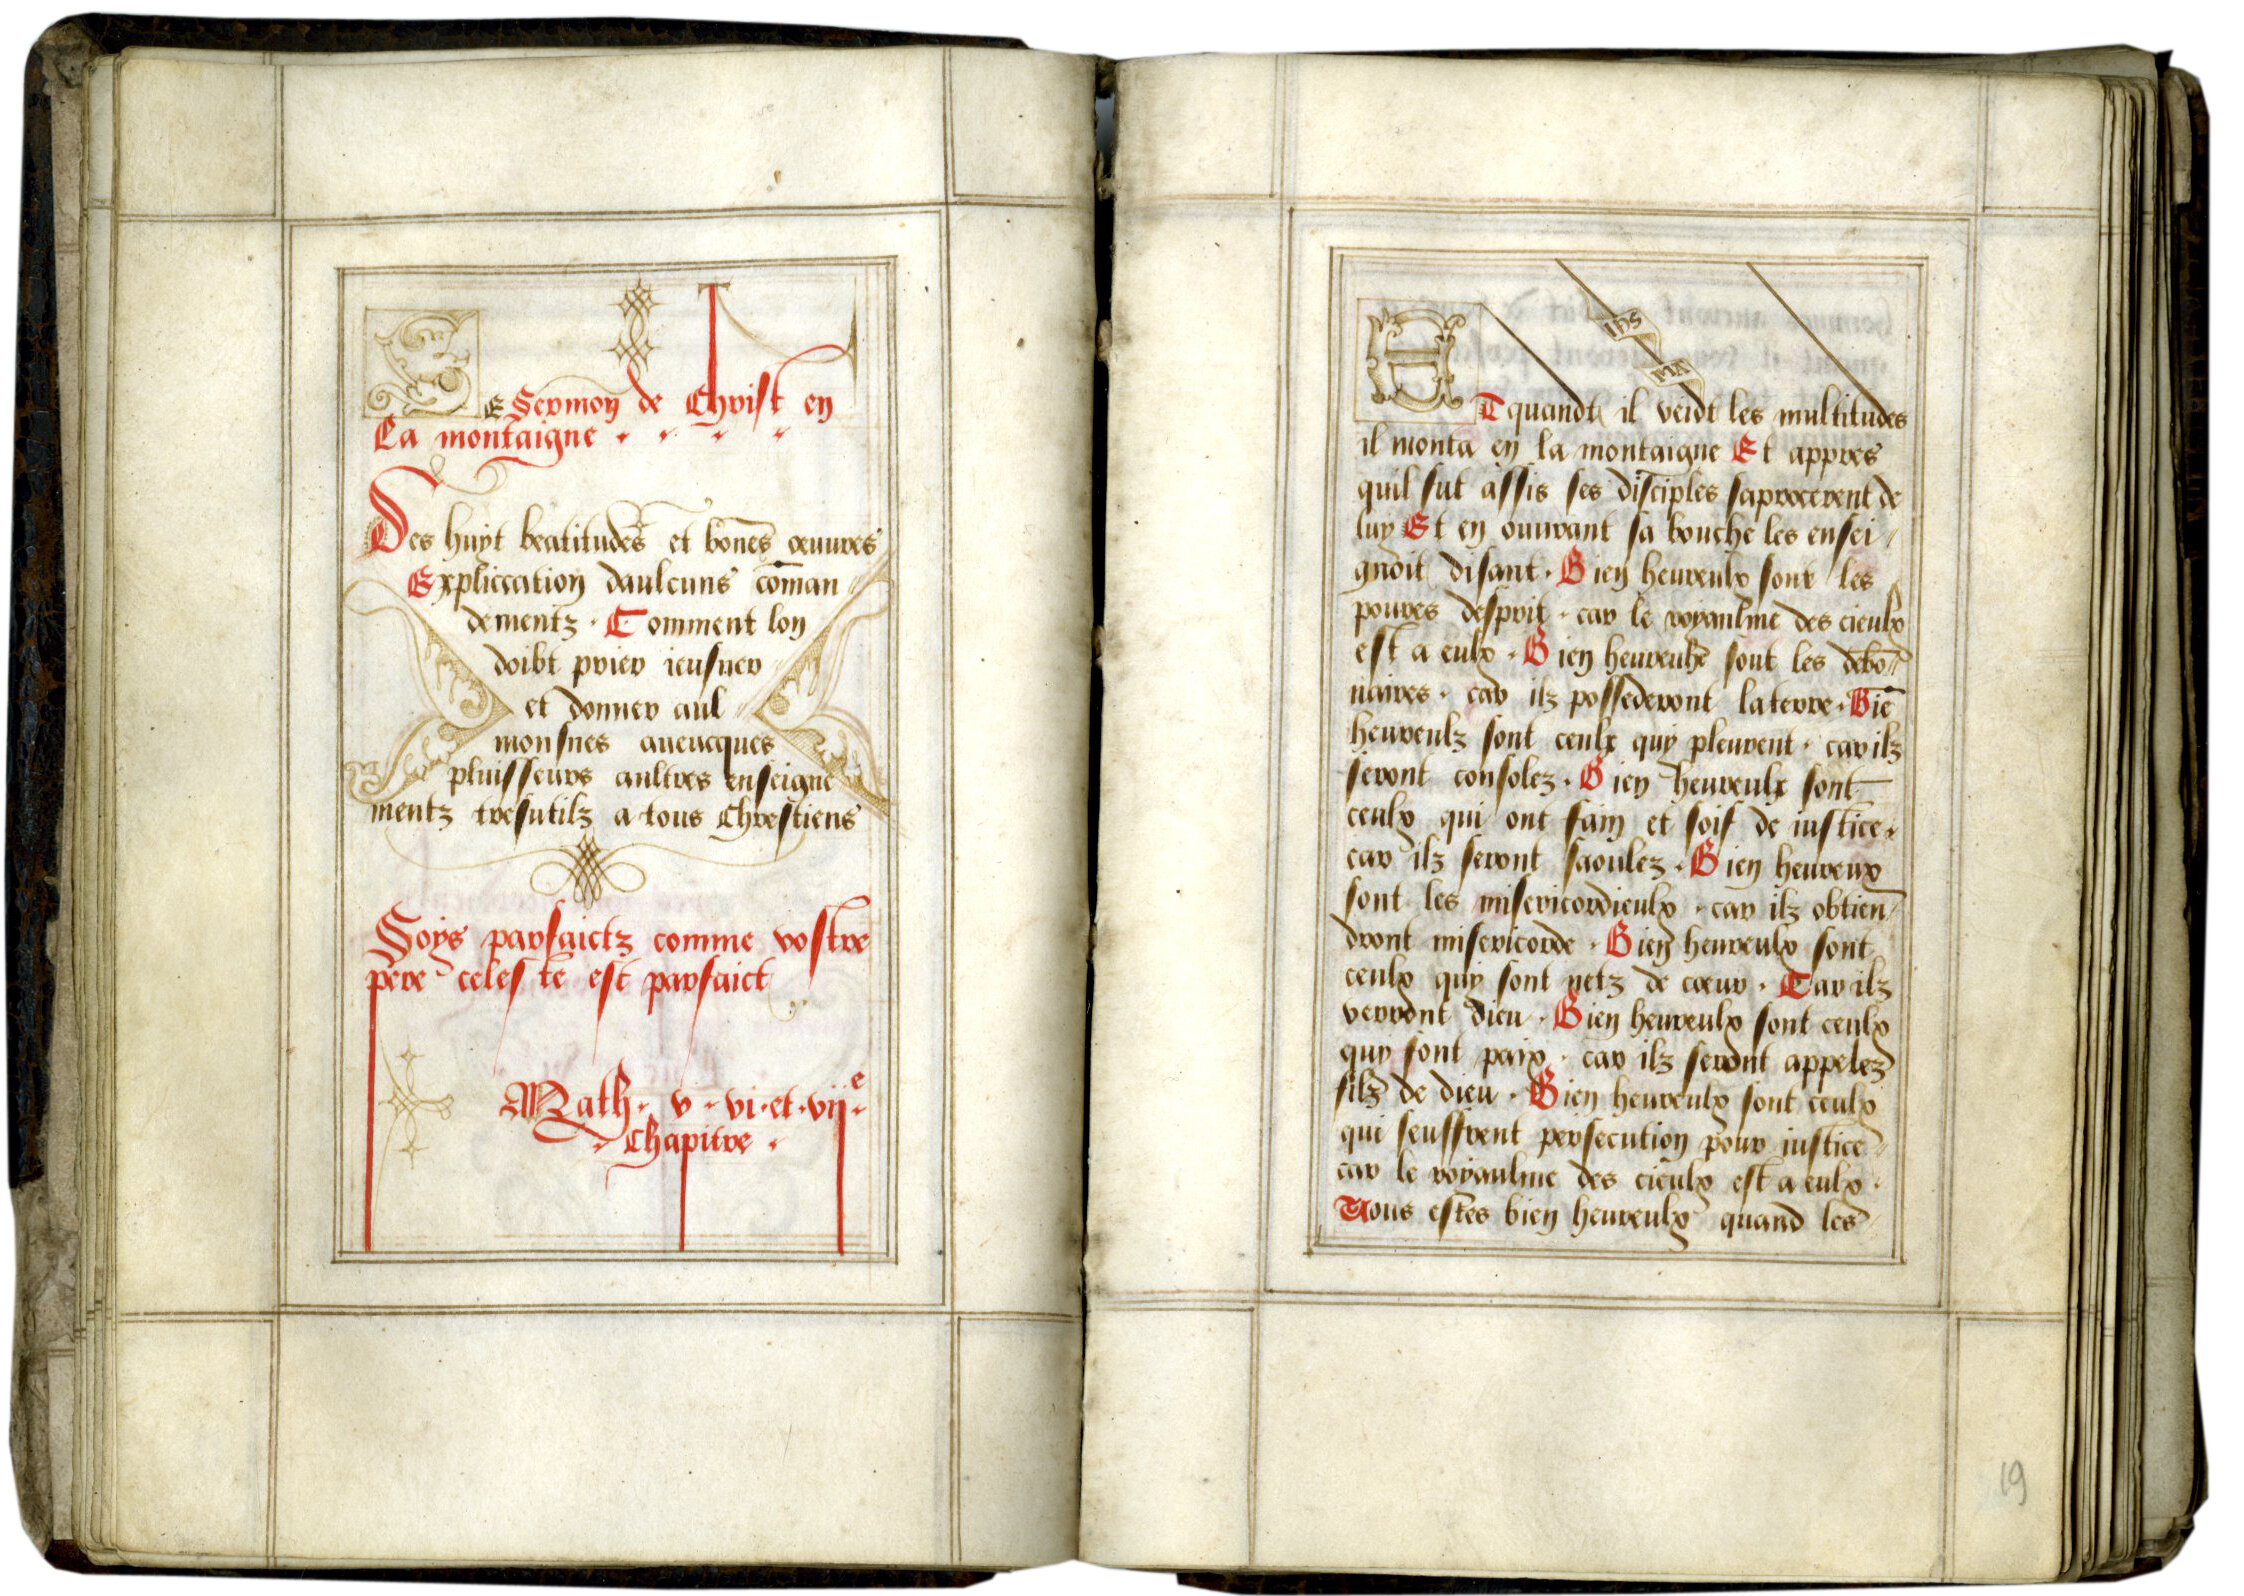 LE Sermon de Christ en
La montaigne
Des huyt beatitudes et bones œuures
Expliccation daulcuns coman
dementz · Comment lon
doibt prier ieusner
et donner aul
monsnes auencques
pluisseurs aultres enseigne
mentz tresutilz a tous Chrestiens
Soys parfaictz comme vostre
pere celeste est parfaict
Math · v · vi · et · vii e
Chapitre ·
IHS
MA
ET quandt il veidt les multitudes
il monta en la montaigne Et appres
quil fut assis ses disciples saprocerent de
luy Et en ouurant sa bouche les ensei
gnoit disant · Bien heureulx sont les
poures desprit · car le royaulme des cieulx
est a eulx · Bien heureulx sont les debo
naires · car ilz possederont la terre · Bie
heureulz sont ceulx quy pleurent · car ilz
seront consolez · Bien heureulx sont
ceulx qui ont fain et soif de iustice ·
car ilz seront saoulez · Bien heureux
sont les misericordieulx · car ilz obtien
dront misericorde · Bien heureulx sont
ceulx quy sont netz de cœur · Car ilz
verront dieu · Bien heureulx sont ceulx
quy font paix · car ilz seront appelez
filz de dieu · Bien heureulx sont ceulx
qui seuffrent persecution pour iustice
car le royaulme des cieulx est a eulx ·
Vous estes bien heureulx quand les
19